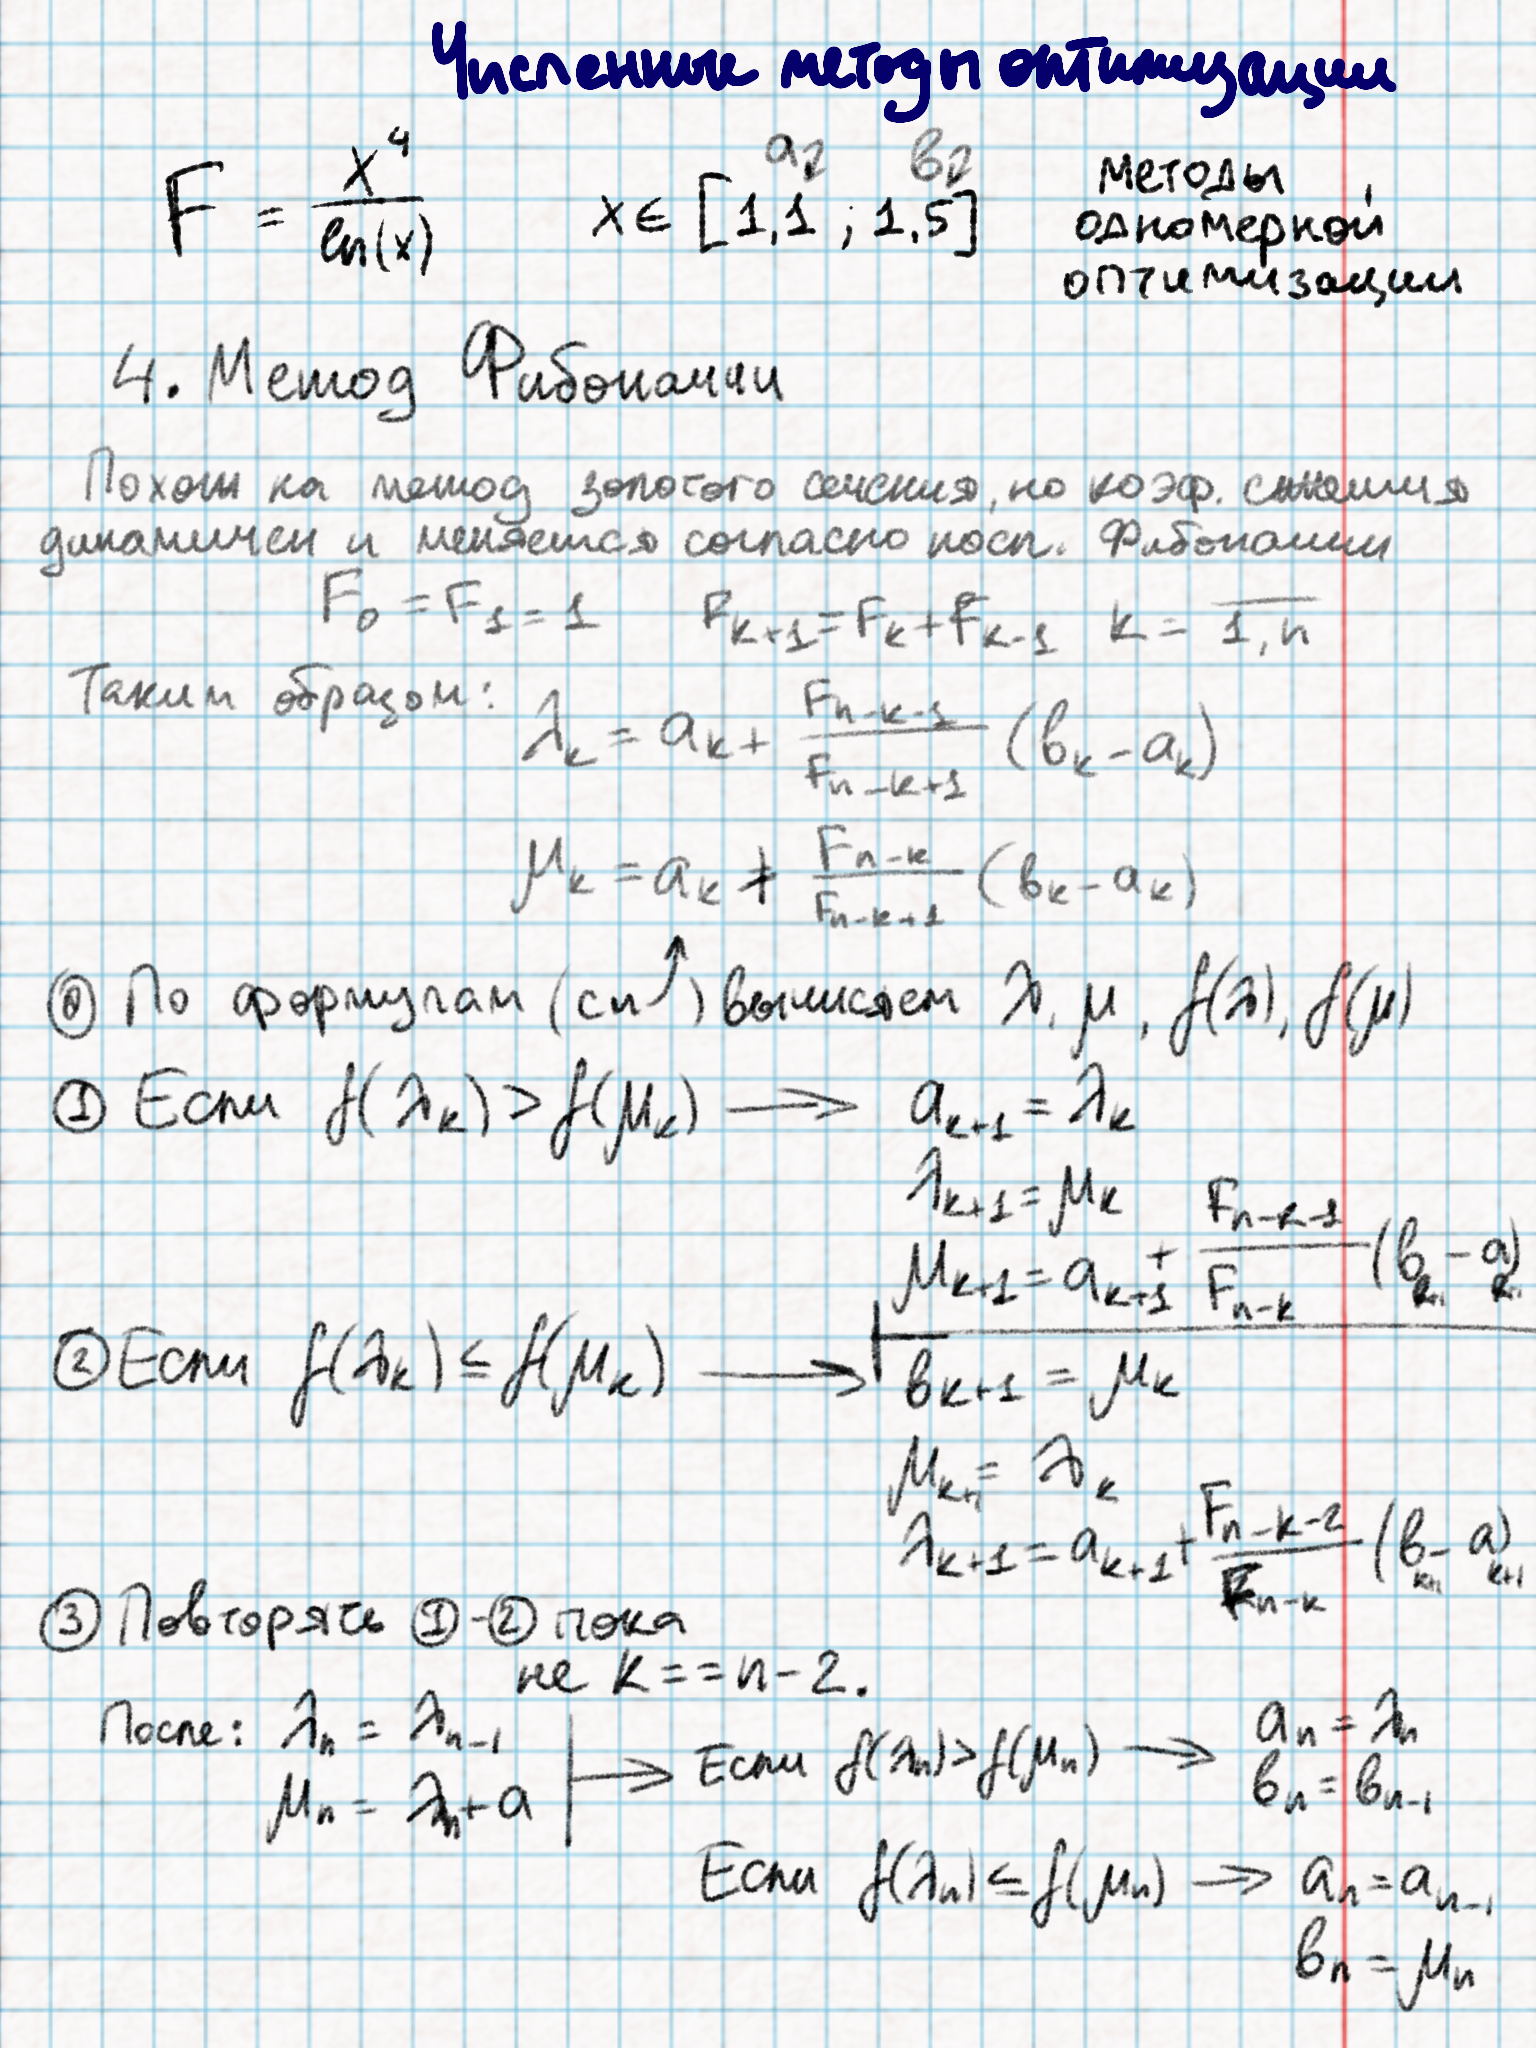 Численные методы оптимизации
F = x⁴ / ln(x)   x ∈ [1,1 ; 1,5]   a₂   b₂
методы
одномерной
оптимизации
4. Метод Фибоначчи
Похож на метод золотого сечения, но коэф. сжатия
динамичен и меняется согласно посл. Фибоначчи
F₀ = F₁ = 1   F_{k+1} = F_k + F_{k-1}   k = \overline{1,n}
Таким образом:
λ_k = a_k + F_{n-k-1} / F_{n-k+1} (b_k - a_k)
μ_k = a_k + F_{n-k} / F_{n-k+1} (b_k - a_k)
⓪ По формулам (см ↑) вычисляем λ, μ, f(λ), f(μ)
① Если f(λ_k) > f(μ_k) → a_{k+1} = λ_k
λ_{k+1} = μ_k
μ_{k+1} = a_{k+1} + F_{n-k-1} / F_{n-k} (b_{k+1} - a_{k+1})
② Если f(λ_k) ≤ f(μ_k) → b_{k+1} = μ_k
μ_{k+1} = λ_k
λ_{k+1} = a_{k+1} + F_{n-k-2} / F_{n-k} (b_{k+1} - a_{k+1})
③ Повторять ①-② пока
не k == n-2.
После: λ_n = λ_{n-1}
μ_n = λ_n + a
→ Если f(λ_n) > f(μ_n) → a_n = λ_n
b_n = b_{n-1}
Если f(λ_n) ≤ f(μ_n) → a_n = a_{n-1}
b_n = μ_n